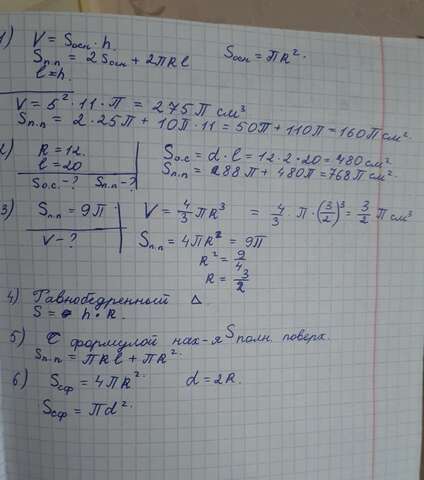 1) V = Sосн · h.
Sп.п = 2 Sосн + 2πRl
Sосн = πR².
l = h.
V = 5² · 11 · π = 275π см³
Sп.п = 2 · 25π + 10π · 11 = 50π + 110π = 160π см².
2) R = 12.
l = 20
Sо.с - ? Sп.п - ?
Sо.с = d · l = 12 · 2 · 20 = 480 см²
Sп.п = 288π + 480π = 768π см².
3) Sп.п = 9π.
V - ?
V = 4/3 πR³ = 4/3 · π · (3/2)³ = 3/2 π см³
Sп.п = 4πR² = 9π
R² = 9/4
R = 3/2
4) Равнобедренный Δ.
S = h · R.
5) С формулой нах-я Sполн. поверх.
Sп.п = πRl + πR².
6) Sсф = 4πR². d = 2R.
Sсф = πd².